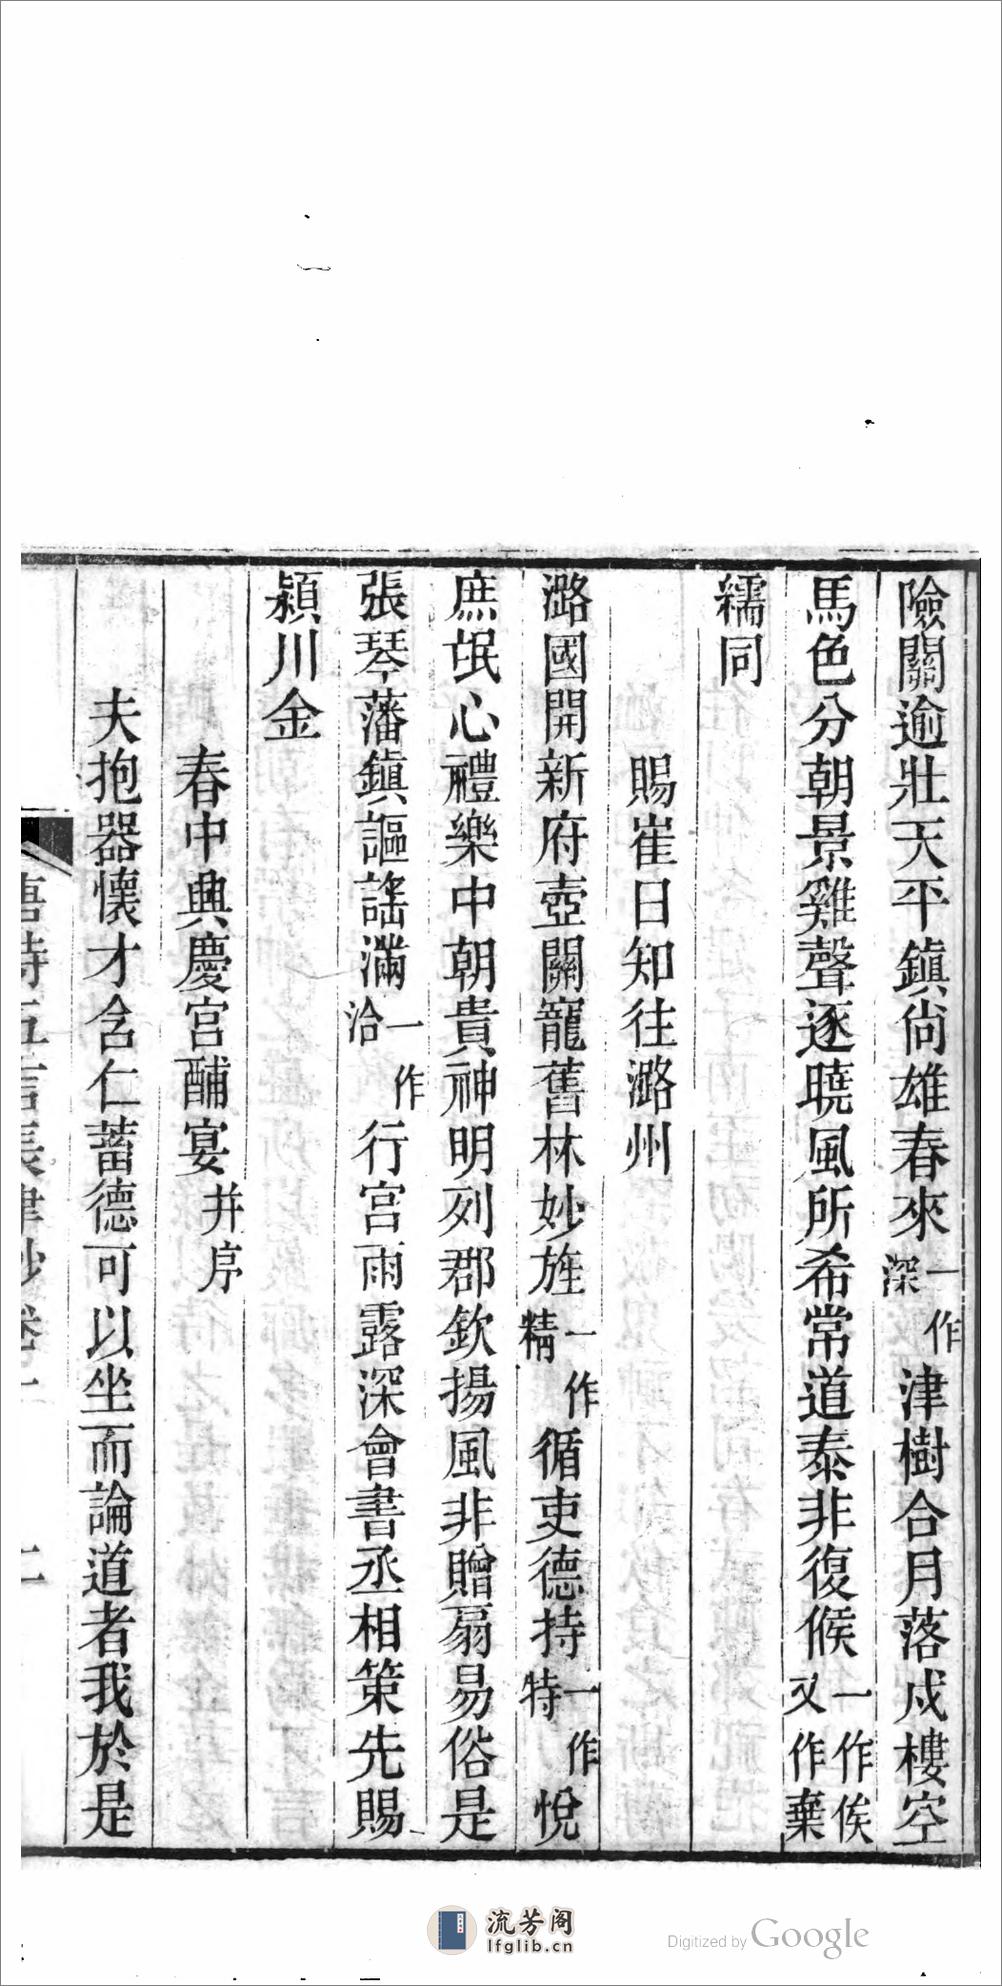 險關逾壯天平鎭尙雄春來一作深津樹合月落戍樓空
馬色分朝景雞聲逐曉風所希常道泰非復候一作俟又作棄
繻同
賜崔日知往潞州
潞國開新府壺關寵舊林妙旌一作精循吏德持一作特悅
庶氓心禮樂中朝貴神明列郡欽揚風非贈扇易俗是
張琴藩鎭謳謠滿一作洽行宮雨露深會書丞相策先賜
潁川金
春中興慶宮酺宴并序
夫抱器懷才含仁蓄德可以坐而論道者我於是
唐詩五言長律鈔卷一 二
流芳阁
lfglib.cn
Digitized by Google